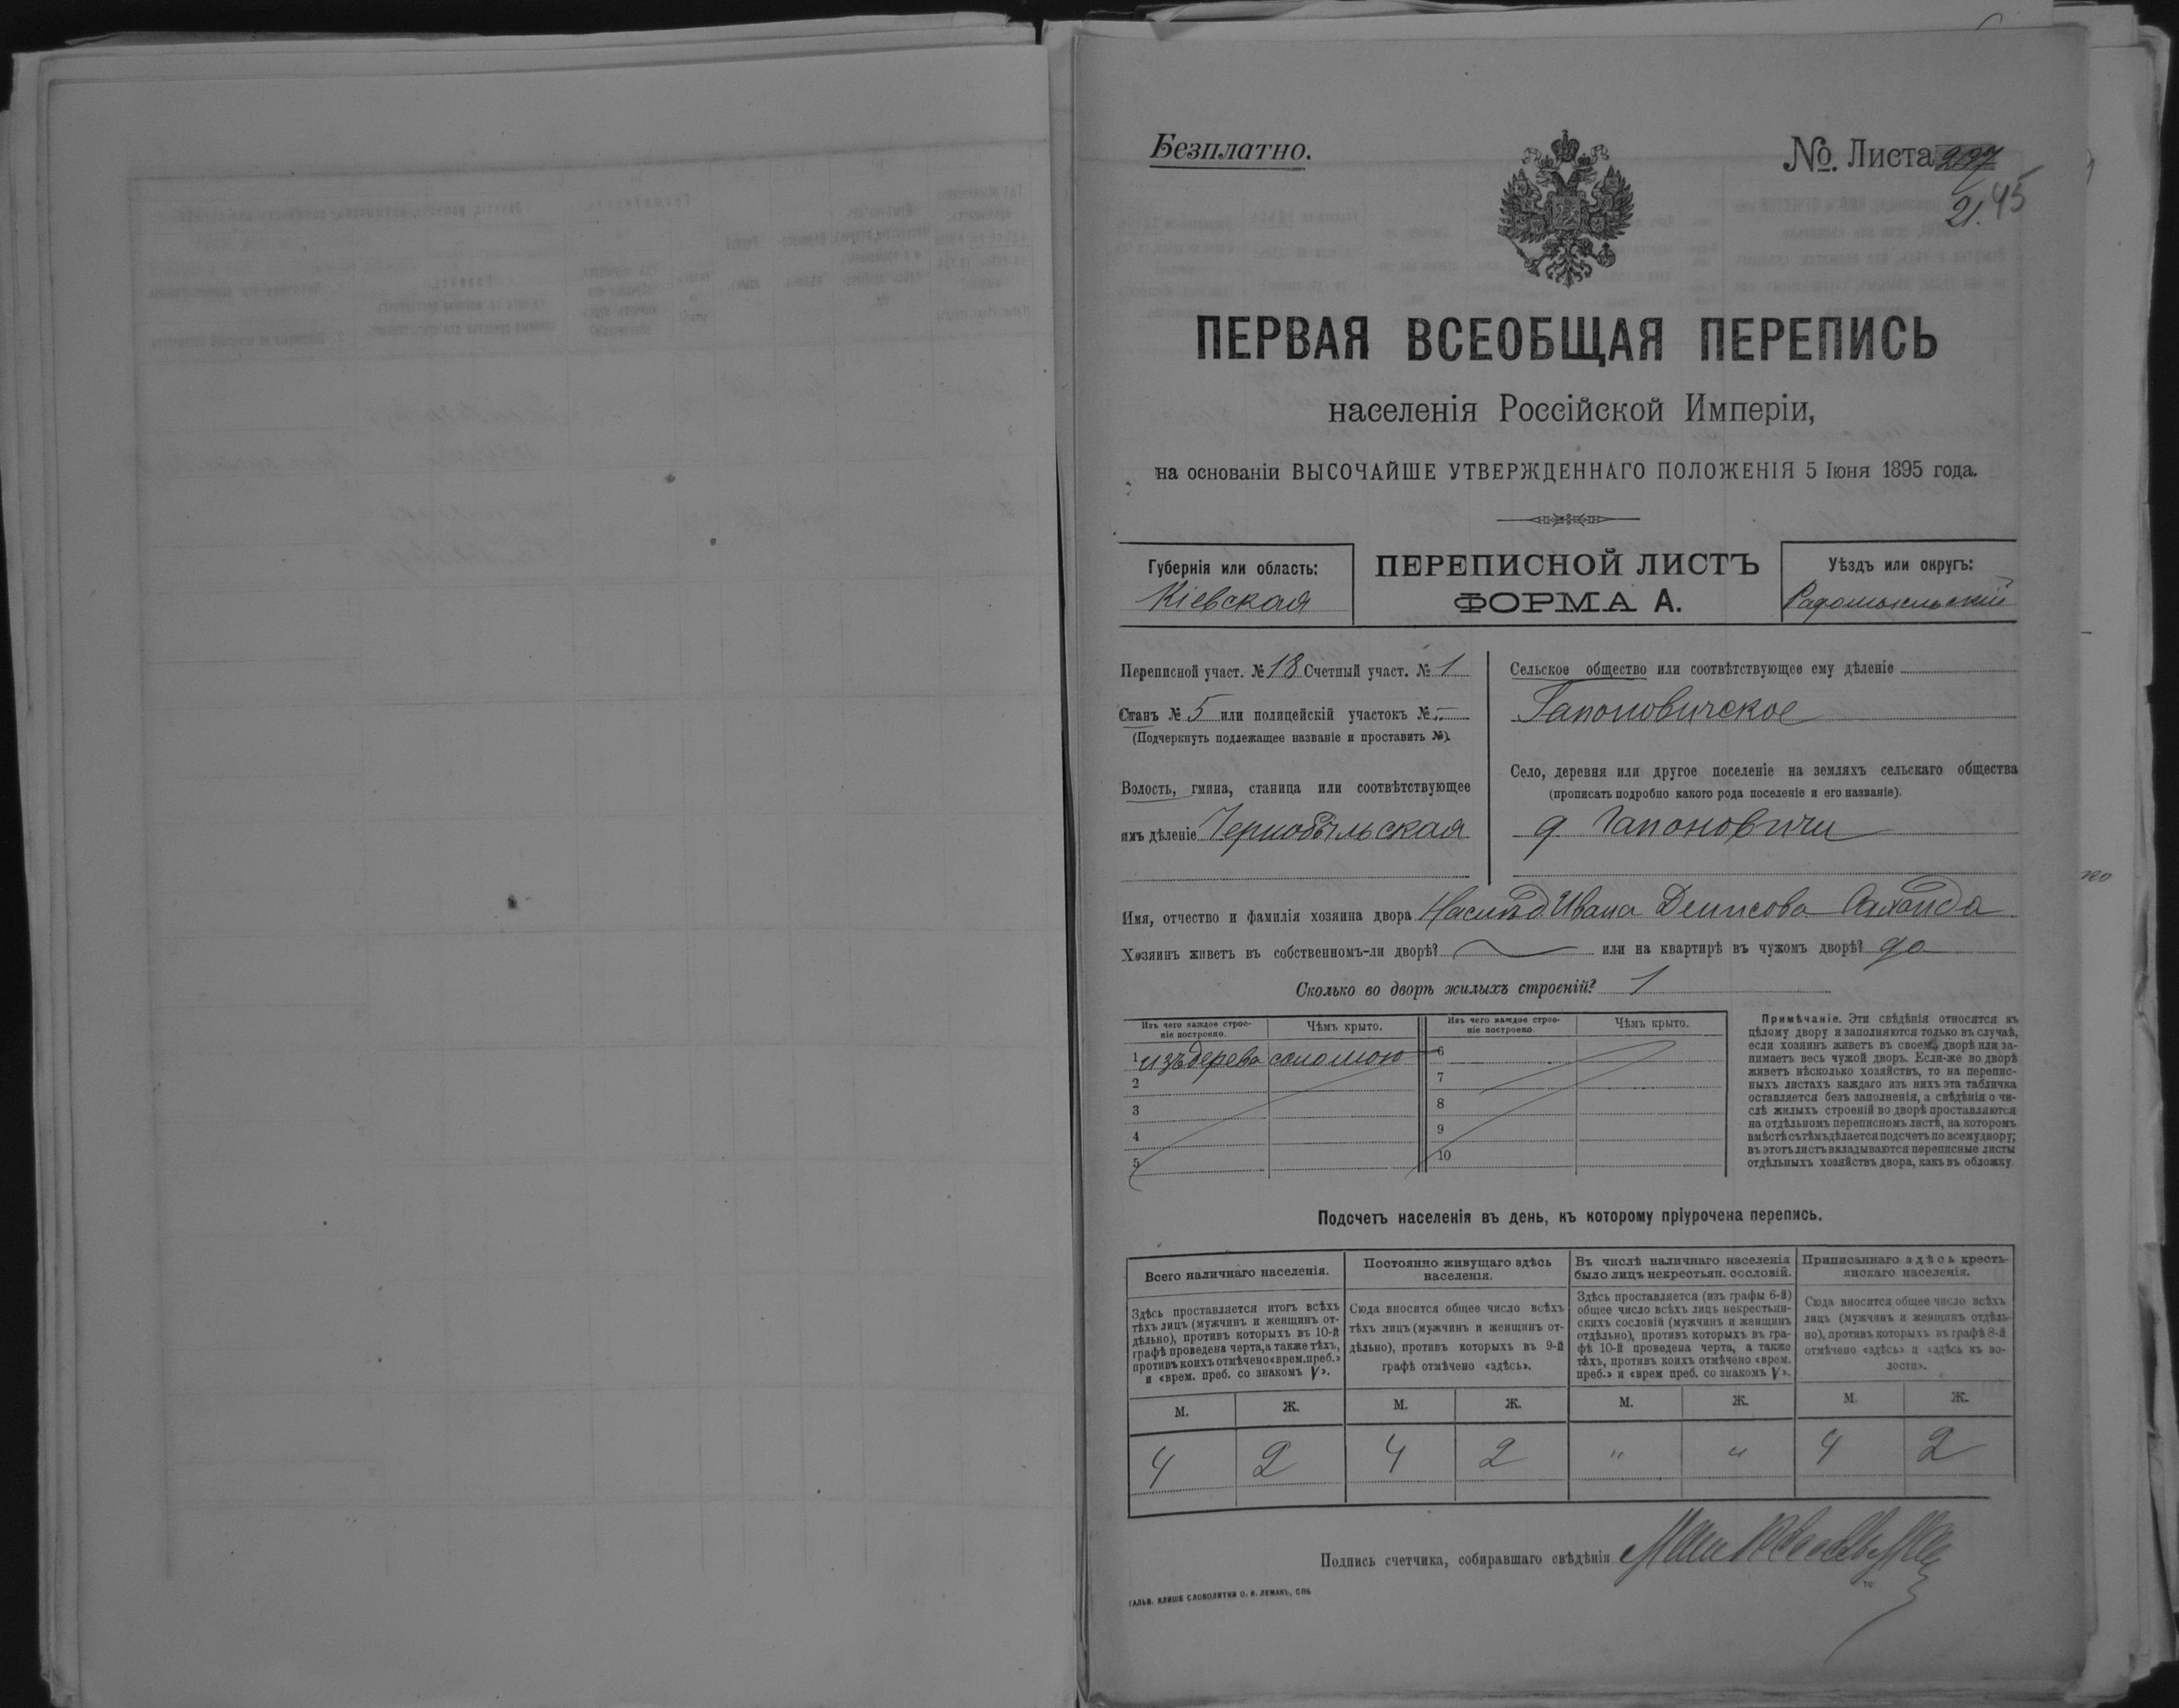 Безплатно.
№. Листа 237
21. 45
ПЕРВАЯ ВСЕОБЩАЯ ПЕРЕПИСЬ
населенія Россійской Имперіи,
на основаніи ВЫСОЧАЙШЕ УТВЕРЖДЕННАГО ПОЛОЖЕНІЯ 5 Іюня 1895 года.
Губернія или область:
Кіевская
ПЕРЕПИСНОЙ ЛИСТЪ
ФОРМА А.
Уѣздъ или округъ:
Радомысльскій
Переписной участ. № 18 Счетный участ. № 1
Станъ № 5 или полицейскій участокъ №
(Подчеркнуть подлежащее названіе и проставить №).
Волость, гмина, станица или соотвѣтствующее
имъ дѣленіе Чернобыльская
Сельское общество или соотвѣтствующее ему дѣленіе
Гапоновичское
Село, деревня или другое поселеніе на земляхъ сельскаго общества
(прописать подробно какого рода поселеніе и его названіе).
д Гапоновичи
Имя, отчество и фамилія хозяина двора Наслѣд. Ивана Денисова
Хозяинъ живетъ въ собственномъ-ли дворѣ? или на квартирѣ въ чужомъ дворѣ? да
Сколько во дворѣ жилыхъ строеній? 1
Изъ чего каждое строе-
ніе построено.
Чѣмъ крыто.
Изъ чего каждое строе-
ніе построено.
Чѣмъ крыто.
1 изъ дерева соломою 6
2 7
3 8
4 9
5 10
Примѣчаніе. Эти свѣдѣнія относятся къ
цѣлому двору и заполняются только въ случаѣ,
если хозяинъ живетъ въ своемъ дворѣ или за-
нимаетъ весь чужой дворъ. Если-же во дворѣ
живетъ нѣсколько хозяйствъ, то на перепис-
ныхъ листахъ каждаго изъ нихъ эта табличка
оставляется безъ заполненія, а свѣдѣнія о чи-
слѣ жилыхъ строеній во дворѣ проставляются
на отдѣльномъ переписномъ листѣ, на которомъ
вмѣстѣ съ тѣмъ дѣлается подсчетъ по всему двору;
въ этотъ листъ вкладываются переписные листы
отдѣльныхъ хозяйствъ двора, какъ въ обложку.
Подсчетъ населенія въ день, къ которому пріурочена перепись.
Всего наличнаго населенія.
Здѣсь проставляется итогъ всѣхъ
тѣхъ лицъ (мужчинъ и женщинъ от-
дѣльно), противъ которыхъ въ 10-й
графѣ проведена черта, а также тѣхъ,
противъ коихъ отмѣчено «врем. преб.»
и «врем. преб. со знакомъ V».
Постоянно живущаго здѣсь
населенія.
Сюда вносится общее число всѣхъ
тѣхъ лицъ (мужчинъ и женщинъ от-
дѣльно), противъ которыхъ въ 9-й
графѣ отмѣчено «здѣсь».
Въ числѣ наличнаго населенія
было лицъ некрестьян. сословій.
Здѣсь проставляется (изъ графы 6-й)
общее число всѣхъ лицъ некрестьян-
скихъ сословій (мужчинъ и женщинъ
отдѣльно), противъ которыхъ въ гра-
фѣ 10-й проведена черта, а также
тѣхъ, противъ коихъ отмѣчено «врем.
преб.» и «врем преб. со знакомъ V».
Приписаннаго здѣсь кресть-
янскаго населенія.
Сюда вносится общее число всѣхъ
лицъ (мужчинъ и женщинъ отдѣль-
но), противъ которыхъ въ графѣ 8-й
отмѣчено «здѣсь» и «здѣсь къ во-
лости».
М. Ж. М. Ж. М. Ж. М. Ж.
4 2 4 2 " " 4 2
Подпись счетчика, собиравшаго свѣдѣнія
ГАЛЬВ. КЛИШЕ СЛОВОЛИТНИ О. И. ЛЕМАНЪ, СПБ